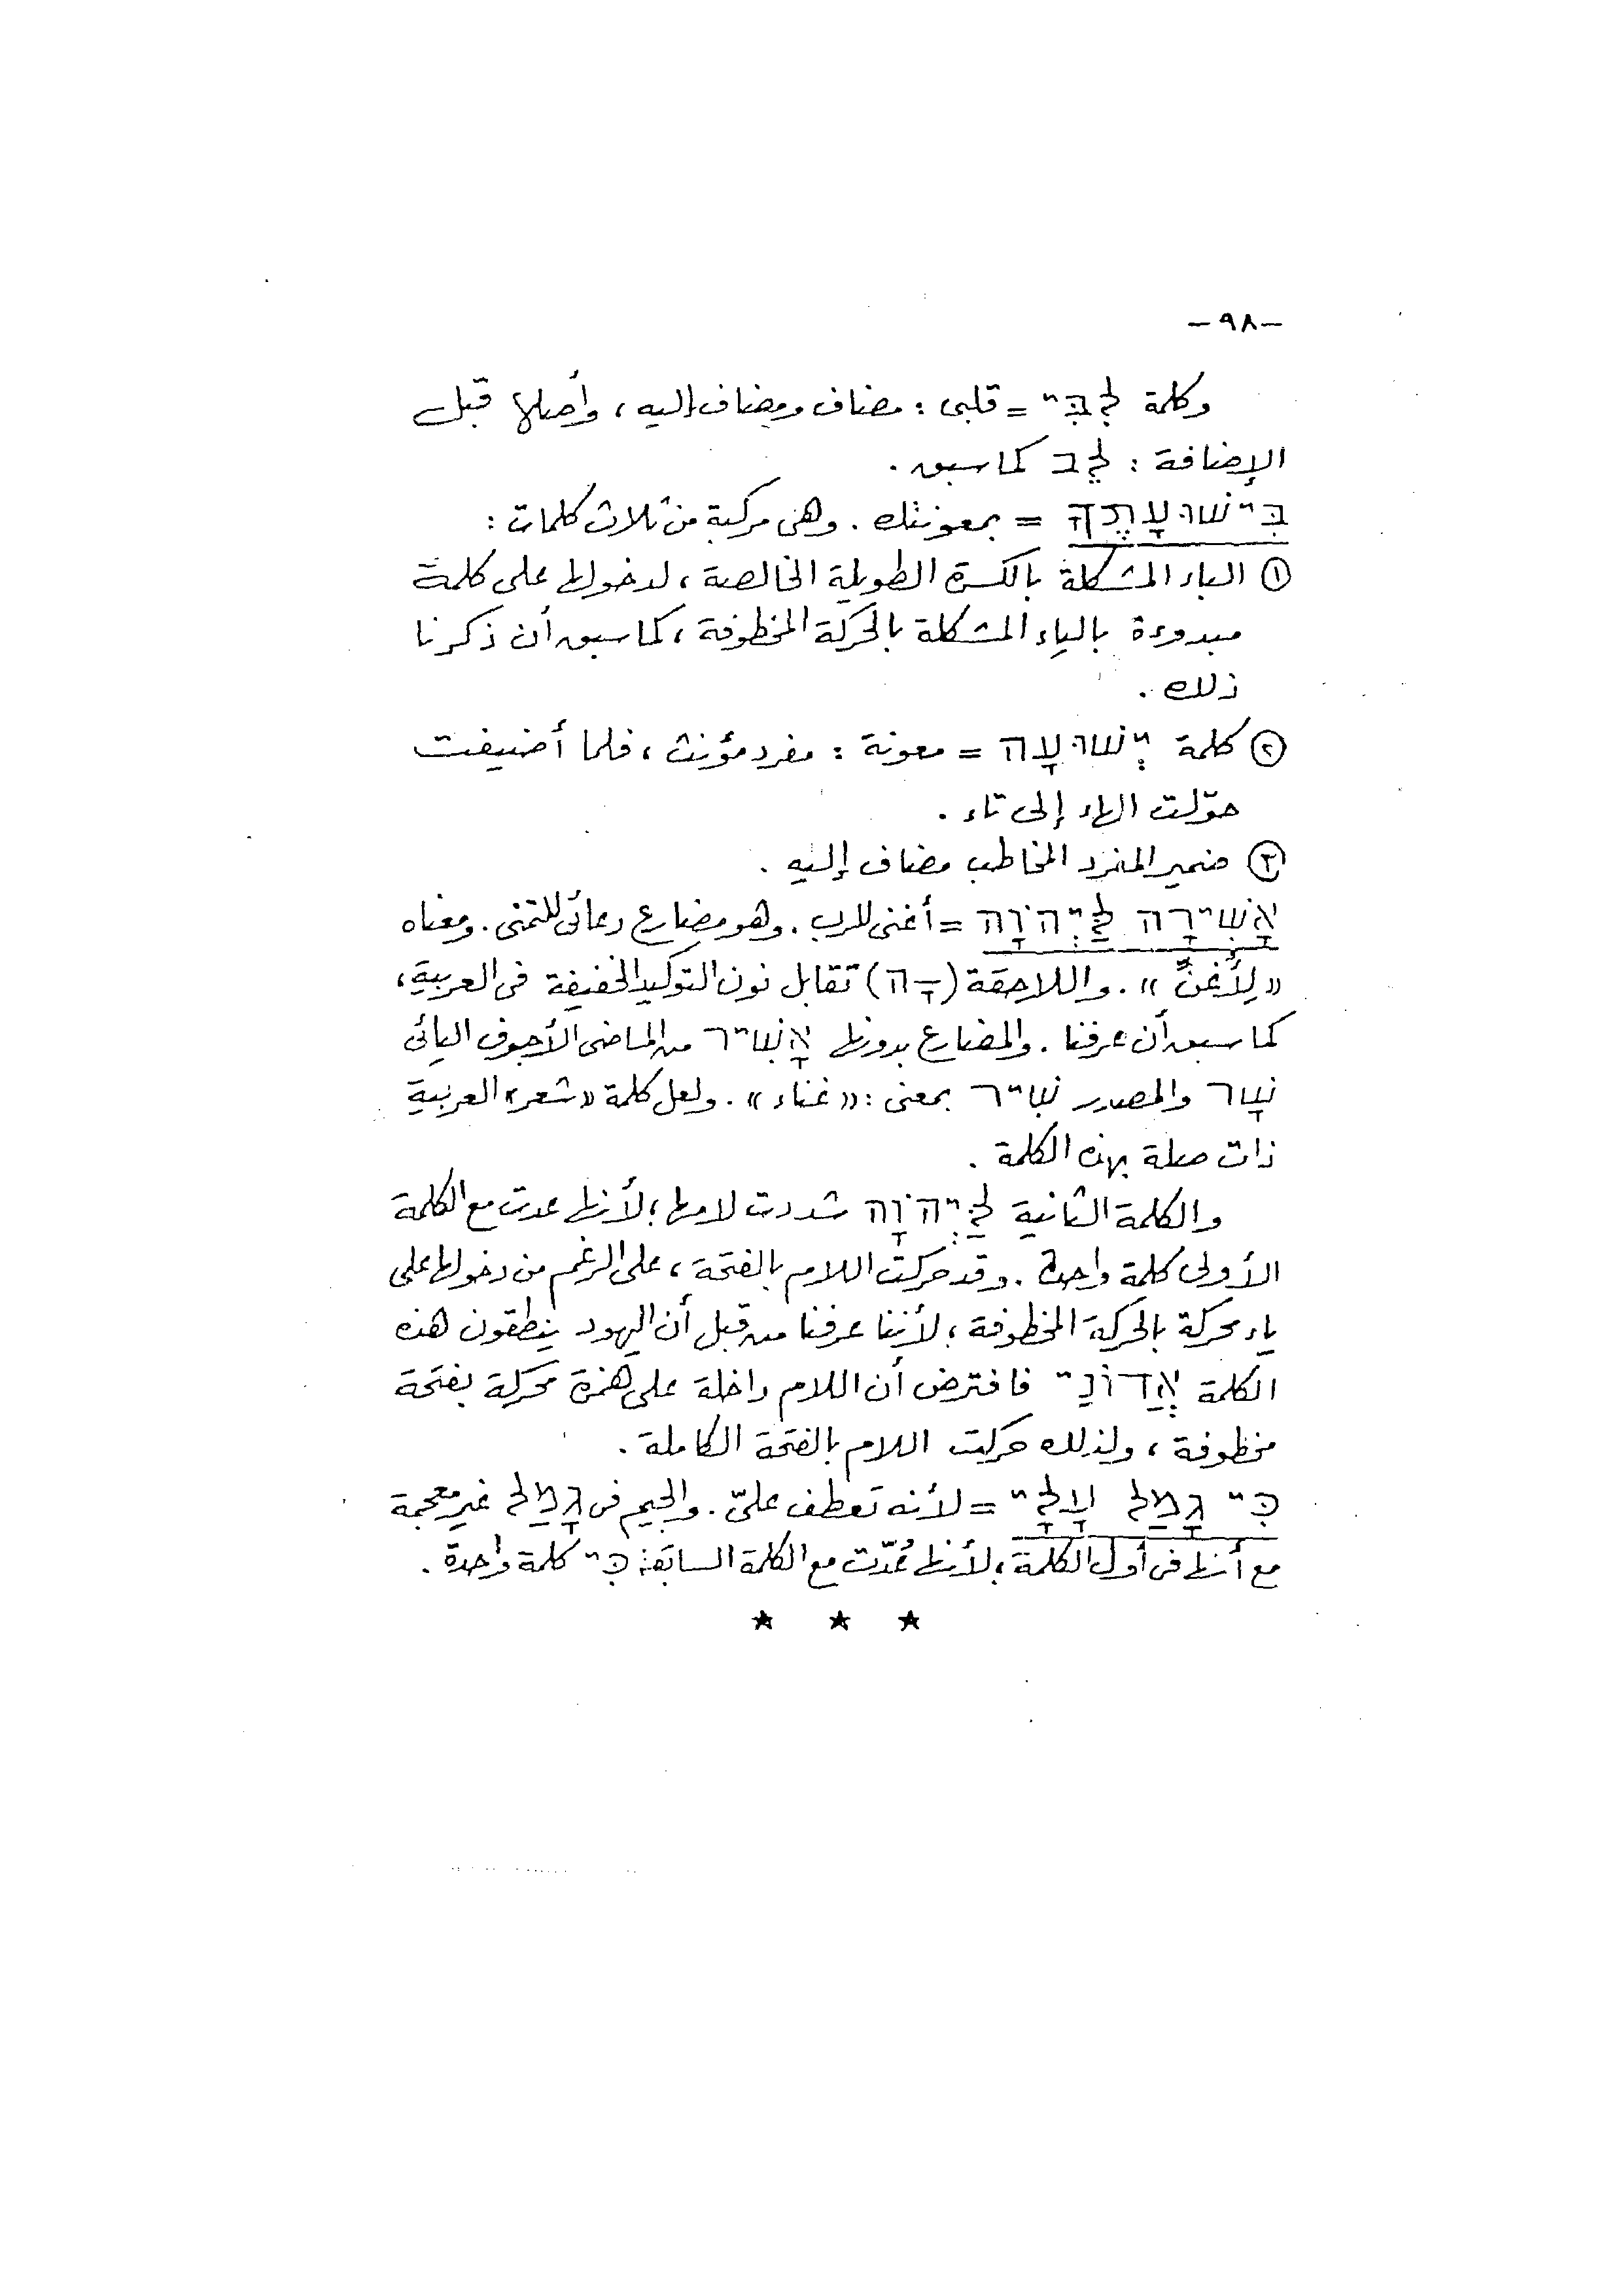 -٩٨-
وكلمة לִבִּי = قلبى : مضاف ومضاف إليه ، وأصلها قبل
الإضافة : לֵב كما سبق .
בִּישׁוּעָתֶךָ = بمعونتك . وهى مركبة من ثلاث كلمات :
① الباء المشكلة بالكسرة الطويلة الخالصة ، لدخولها على كلمة
مبدوءة بالياء المشكلة بالحركة المخطوفة ، كما سبق أن ذكرنا
ذلك .
② كلمة יְשׁוּעָה = معونة : مفرد مؤنث ، فلما أضيفت
حوّلت الهاء إلى تاء .
③ ضمير المفرد المخاطب مضاف إليه .
אָשִׁירָה לַּיְהוָֹה = أغنى للرب . وهو مضارع دعائى للتمنى . ومعناه
« لِأُغَنِّ » . واللاحقة (ָה) تقابل نون التوكيد الخفيفة فى العربية ،
كما سبق أن عرفنا . والمضارع بدونها אָשִׁיר من الماضى الأجوف اليائى
שָׁר والمصدر שִׁיר بمعنى : « غناء » . ولعل كلمة « شعر » العربية
ذات صلة بهذه الكلمة .
والكلمة الثانية לַּיְהוָֹה شددت لامها ؛ لأنها عدت مع الكلمة
الأولى كلمة واحدة . وقد حركت اللام بالفتحة ، على الرغم من دخولها على
ياء محركة بالحركة المخطوفة ؛ لأننا عرفنا من قبل أن اليهود ينطقون هذه
الكلمة אֲדוֹנָי فافترض أن اللام داخلة على همزة محركة بفتحة
مخطوفة ، ولذلك حركت اللام بالفتحة الكاملة .
כִּי גָמַל עָלָי = لأنه تعطف علىّ . والجيم فى גָמַל غير معجمة
مع أنها فى أول الكلمة ؛ لأنها عُدّت مع الكلمة السابقة כִּי كلمة واحدة .
★ ★ ★